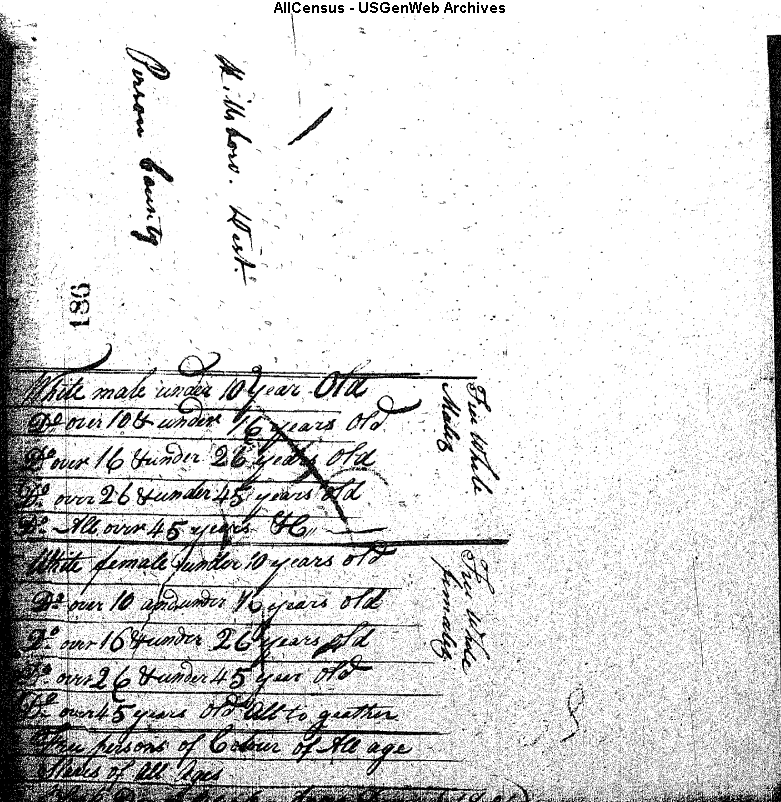 AllCensus - USGenWeb Archives
Hillsboro. Dist.
Person County
186
Free White
Males
White male under 10 year Old
Do over 10 & under 16 years Old
Do over 16 & under 26 years Old
Do over 26 & under 45 years Old
Do All over 45 years &C
Free White
females
White female under 10 years old
Do over 10 and under 16 years old
Do over 16 & under 26 years old
Do over 26 & under 45 year Old
Do over 45 years Old All to geather
Free persons of Colour of All age
Slaves of All Ages